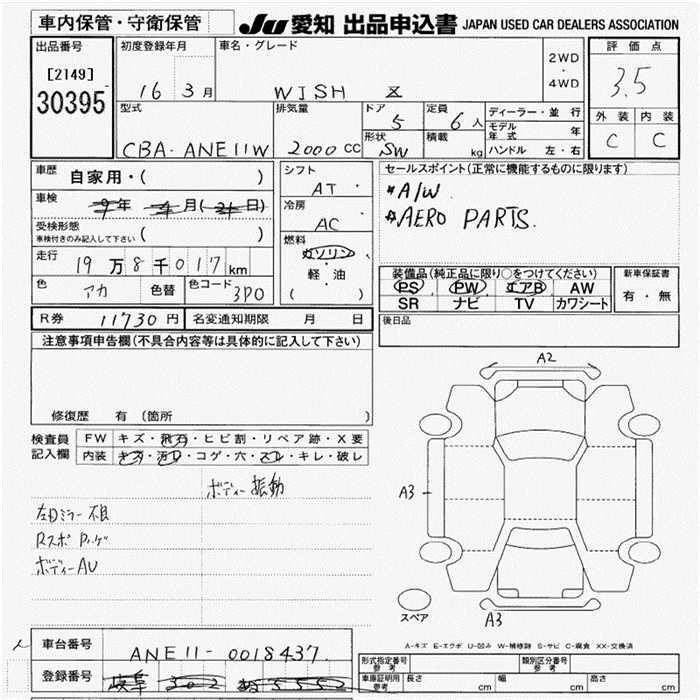 車内保管・守衛保管
JU 愛知 出品申込書 JAPAN USED CAR DEALERS ASSOCIATION
出品番号
[2149]
30395
初度登録年月
16 3月
車名・グレード
WISH X
2WD
・
4WD
評価点
3.5
外装 内装
C C
型式
CBA-ANE11W
排気量
2000cc
ドア
5
定員
6人
形状
SW
積載
kg
ディーラー・並行
モデル年式 年
ハンドル 左・右
車歴
自家用・( )
車検
年 月( 日)
受検形態
車検付きのみ記入して下さい ( )
走行
19万8千017km
色
アカ
色替
色コード
3P0
シフト
AT
冷房
AC
燃料
ガソリン
・
軽・油
( )
セールスポイント(正常に機能するものに限ります)
*A/W.
*AERO PARTS.
装備品(純正品に限り○をつけてください)
PS PW エアB AW
SR ナビ TV カワシート
新車保証書
有・無
R券 11730円
名変通知期限 月 日
後日品
注意事項申告欄(不具合内容等は具体的に記入して下さい)
修復歴 有(箇所
検査員
記入欄
FW キズ・飛石・ヒビ割・リペア跡・X要
内装 キズ・汚レ・コゲ・穴・スレ・キレ・破レ
ボディー振動
左Dミラー不良
Rスポ
ボディーAU
A2
A3
A3
スペア
A-キズ E-エクボ U-凹み W-補修跡 S-サビ C-腐食 XX-交換済
車台番号
ANE11-0018437
登録番号
岐阜 302
形式指定番号
参考
類別区分番号
参考
車庫証明用
参考
長さ cm
幅 cm
高さ cm